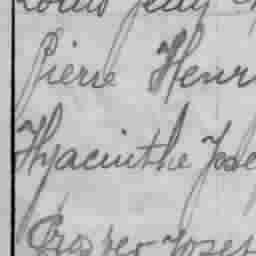 Pierre Henr
Hyacinthe Jose
Prosper Josep